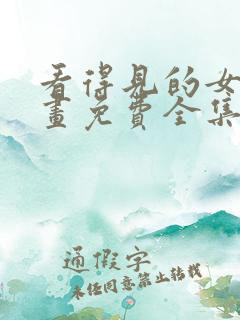 看得见的女
画免费全集
通假字
未经同意禁止转载